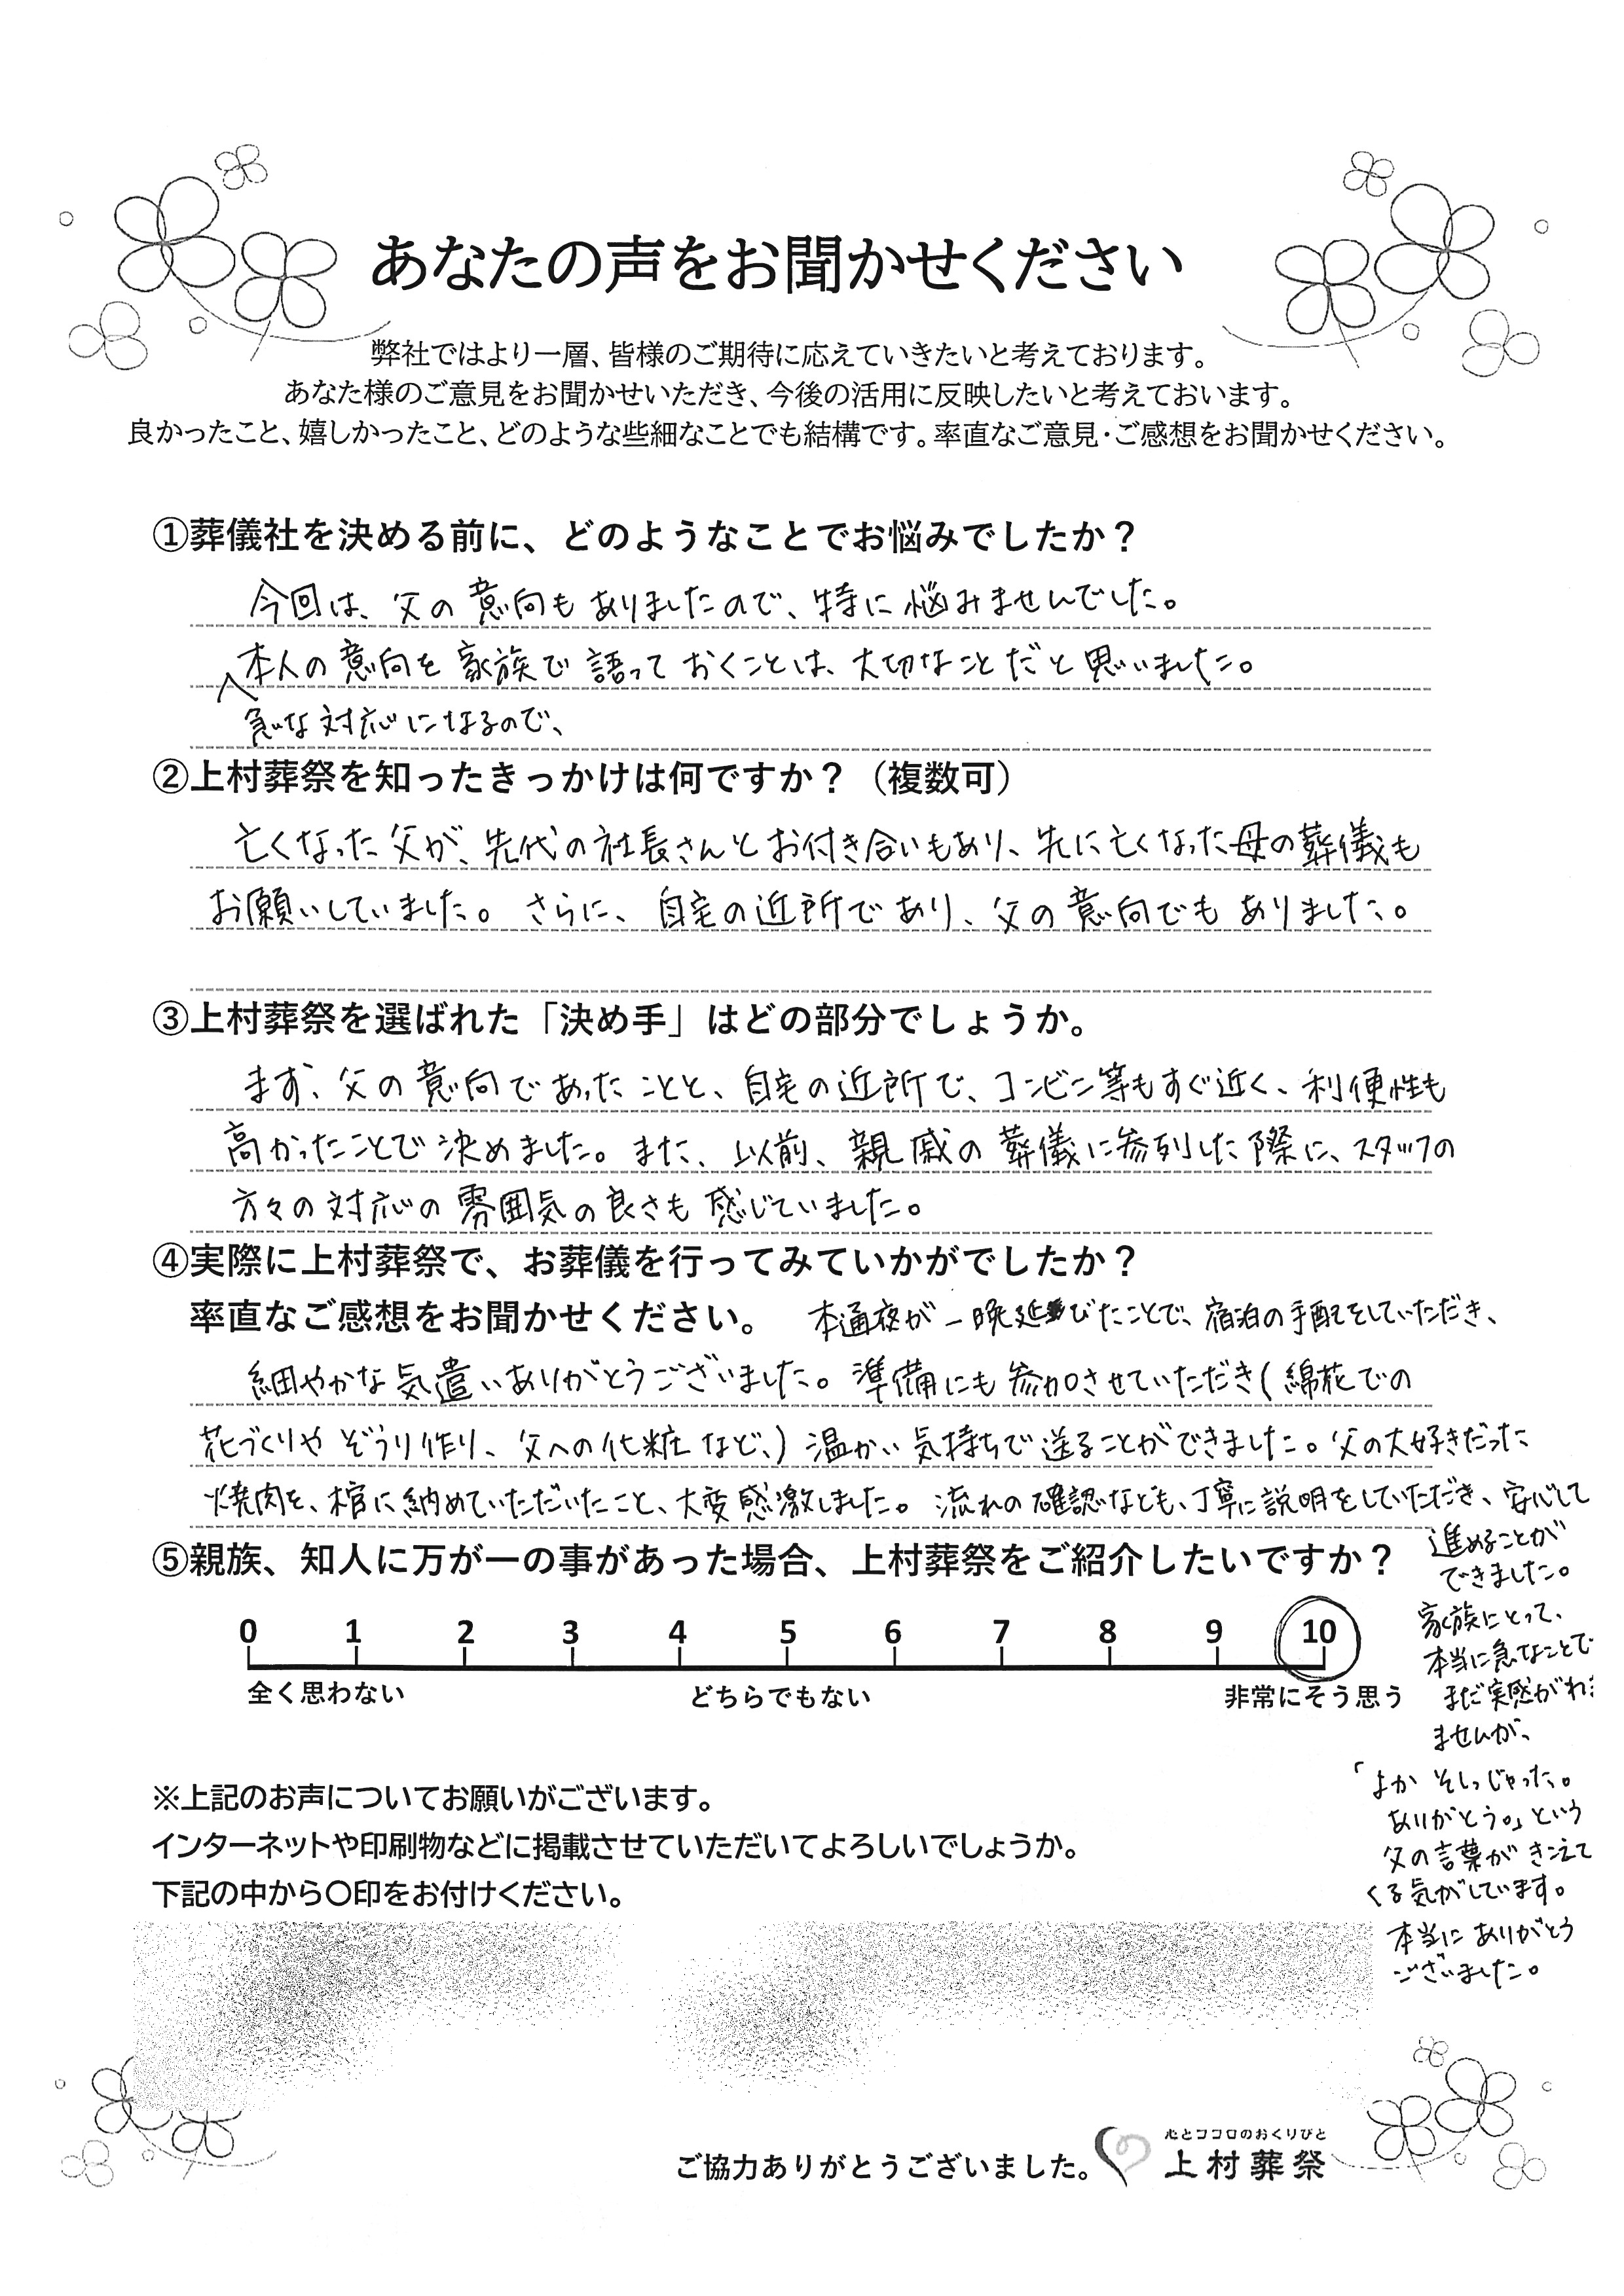 あなたの声をお聞かせください
弊社ではより一層、皆様のご期待に応えていきたいと考えております。
あなた様のご意見をお聞かせいただき、今後の活用に反映したいと考えておいます。
良かったこと、嬉しかったこと、どのような些細なことでも結構です。率直なご意見・ご感想をお聞かせください。
①葬儀社を決める前に、どのようなことでお悩みでしたか？
今回は、父の意向もありましたので、特に悩みませんでした。
本人の意向を家族で語っておくことは、大切なことだと思いました。
急な対応になるので、
②上村葬祭を知ったきっかけは何ですか？（複数可）
亡くなった父が、先代の社長さんとお付き合いもあり、先に亡くなった母の葬儀も
お願いしていました。さらに、自宅の近所であり、父の意向でもありました。
③上村葬祭を選ばれた「決め手」はどの部分でしょうか。
まず、父の意向であったことと、自宅の近所で、コンビニ等もすぐ近く、利便性も
高かったことで決めました。また、以前、親戚の葬儀に参列した際に、スタッフの
方々の対応の雰囲気の良さも感じていました。
④実際に上村葬祭で、お葬儀を行ってみていかがでしたか？
率直なご感想をお聞かせください。 本通夜が一晩延びたことで、宿泊の手配をしていただき、
細やかな気遣いありがとうございました。準備にも参加させていただき(綿花での
花づくりやぞうり作り、父への化粧など、)温かい気持ちで送ることができました。父の大好きだった
焼肉を、棺に納めていただいたこと、大変感激しました。流れの確認なども、丁寧に説明をしていただき、安心して
進めることが
できました。
⑤親族、知人に万が一の事があった場合、上村葬祭をご紹介したいですか？
0 1 2 3 4 5 6 7 8 9 10
全く思わない どちらでもない 非常にそう思う
家族にとって、
本当に急なことで
まだ実感がわき
ませんが、
「よかそしっじゃった。
ありがとう。」という
父の言葉がきこえて
くる気がしています。
本当にありがとう
ございました。
※上記のお声についてお願いがございます。
インターネットや印刷物などに掲載させていただいてよろしいでしょうか。
下記の中から〇印をお付けください。
ご協力ありがとうございました。
心とココロのおくりびと
上村葬祭